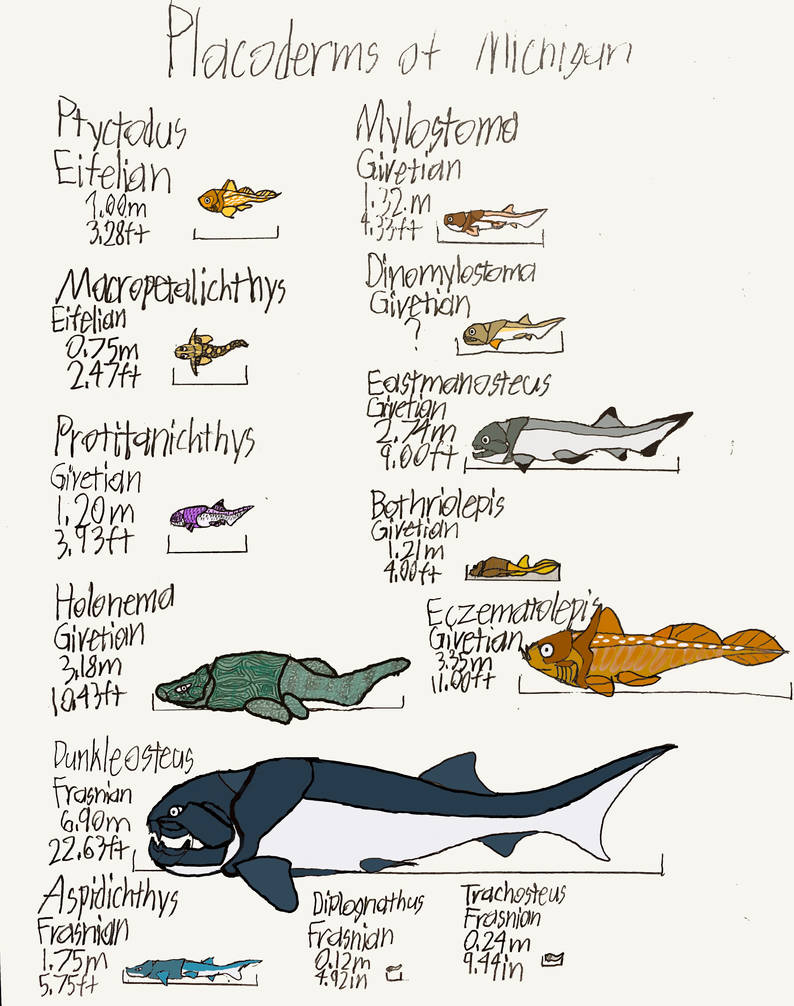 Placoderms of Michigan
Ptyctodus
Eifelian
1.00m
3.28ft
Macropetalichthys
Eifelian
0.75m
2.47ft
Protitanichthys
Givetian
1.20m
3.93ft
Holonema
Givetian
3.18m
10.43ft
Mylostoma
Givetian
1.32m
4.33ft
Dinomylostoma
Givetian
?
Eastmanosteus
Givetian
2.74m
9.00ft
Bothriolepis
Givetian
1.21m
4.00ft
Eczematolepis
Givetian
3.35m
11.00ft
Dunkleosteus
Frasnian
6.90m
22.63ft
Aspidichthys
Frasnian
1.75m
5.75ft
Diplognathus
Frasnian
0.12m
4.92in
Trachosteus
Frasnian
0.24m
9.44in